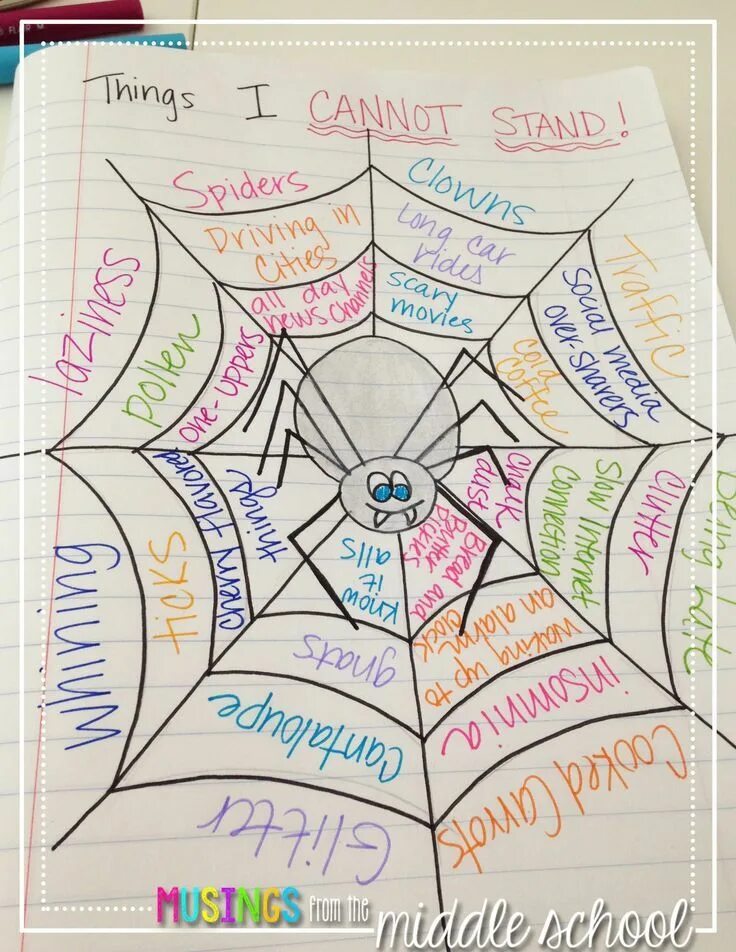 Things I CANNOT STAND!
Spiders
Driving in
Cities
all day
news channels
Clowns
Long car
rides
scary
movies
Traffic
Social media
over-sharers
cold
coffee
Being Late
Clutter
Slow Internet
Connection
chalk
dust
Cooked Carrots
insomnia
waking up to
an alarm
clock
Bread and
Butter
Pickles
Glitter
Cantaloupe
gnats
know
it
alls
whining
ticks
cherry flavored
things
laziness
pollen
one-uppers
MUSINGS from the middle school